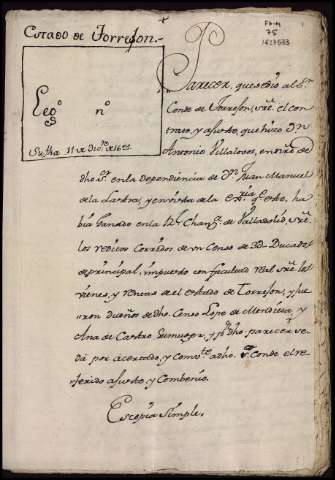 Estado de Torrejon.
Leg.º n.º
Su fha. 11 de Diz.re de 1621
75
Parecer, que se dio al S.r
Conde de Torrejon, sre. el con
trato, y ajuste, que hizo Dn
Antonio Villalobos, en nre. de
dho. S.r en la dependiencia de Dn Juan Manuel
de la Lastra, y en vista de la ex.ria q.e este, ha
bia Ganado en la R.l Chanz.a de Valladolid, sre.
los reditos Corridos de un Censo de 3d Ducados
de principal, impuesto con facultad real sre. los
vienes, y rentas de el estado de Torrejon, y fue
ron dueños de dho. Censo Lope de Mendieta, y
Ana de Castro su muger, y p.r dho. parecer se
da por acertado, y comb.te a dho. S.r Conde el re
ferido ajuste, y Combenio.
Es copia simple.